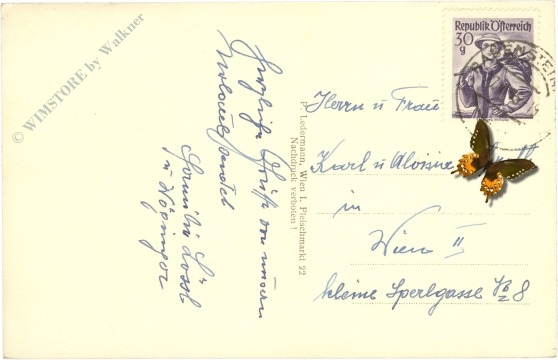 © WIMSTORE by Walkner
Herzliche Grüße von unserm
Familie Lössl
u Wöginger
P. Ledermann, Wien I. Fleischmarkt 22
Nachdruck verboten !
Republik Österreich
30
g
Herrn u Frau
Karl u Aloisine
in
Wien II
kleine Sperlgasse 8